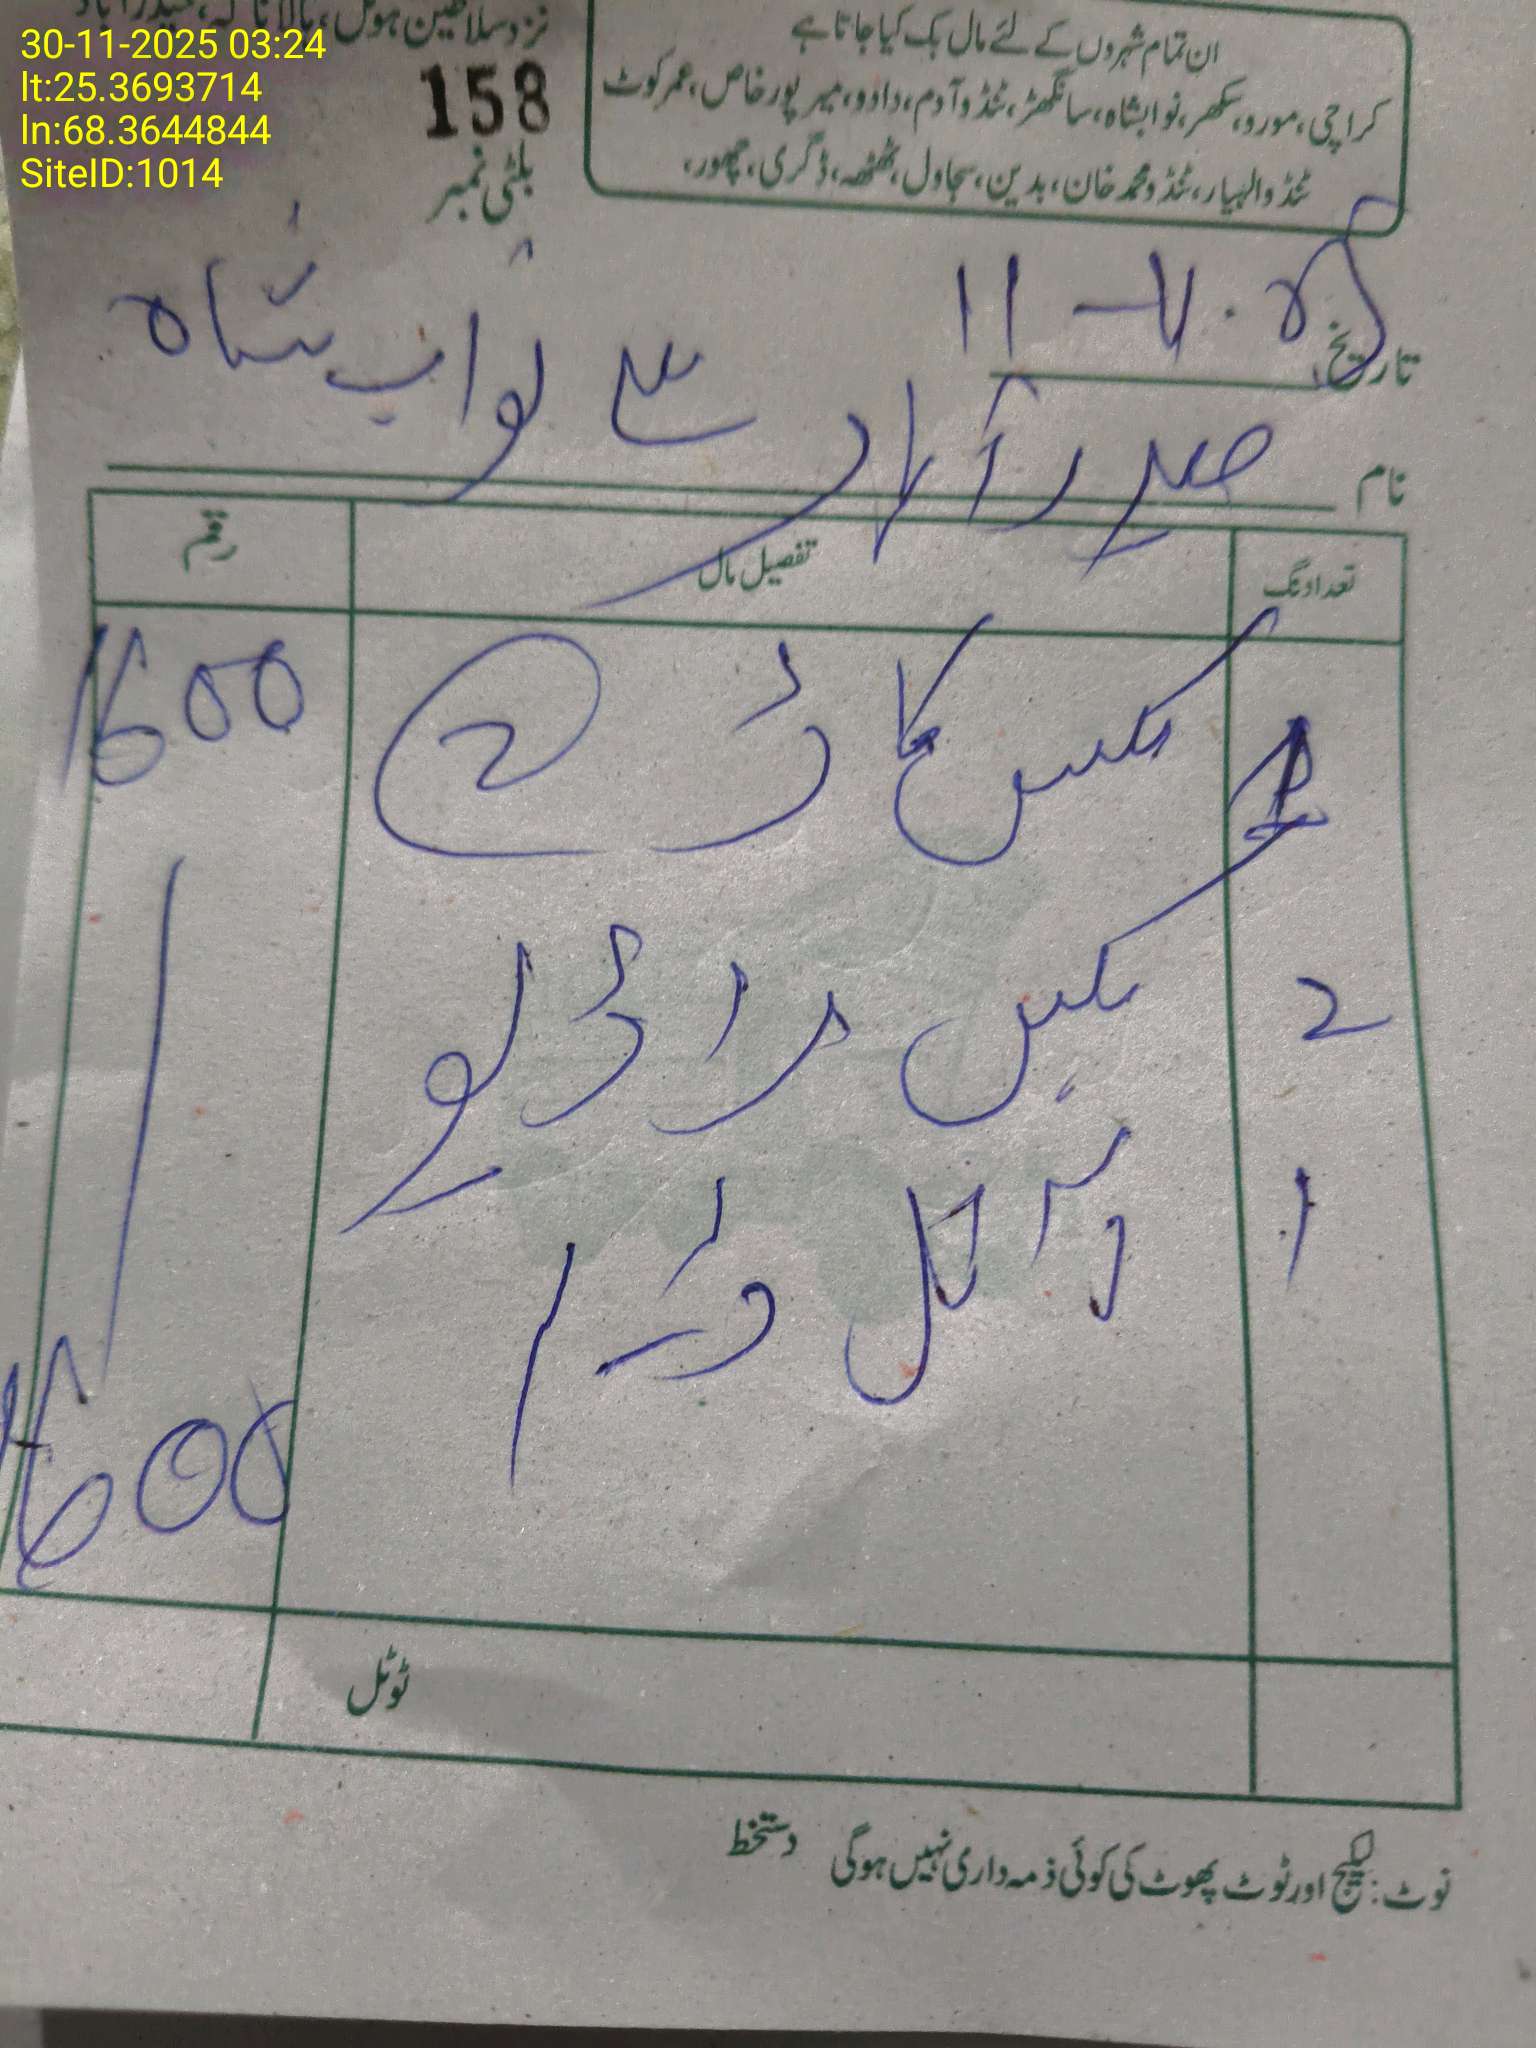 30-11-2025 03:24
lt:25.3693714
ln:68.3644844
SiteID:1014
نزد سلاطین ہوٹل، بالا ناکہ، حیدرآباد
158
بلٹی نمبر
ان تمام شہروں کے لئے مال بک کیا جاتا ہے
کراچی، مورو، سکھر، نوابشاہ، سانگھڑ، ٹنڈوآدم، دادو، میرپورخاص، عمرکوٹ
ٹنڈوالہیار، ٹنڈومحمد خان، بدین، سجاول، ٹھٹھہ، ڈگری، چھور،
تاریخ
نام حیدرآباد سے نواب شاہ
تعداد نگ تفصیل مال رقم
مکس کاٹن 2 1600
2 مکس
1
1600
ٹوٹل
نوٹ: لیکیج اور ٹوٹ پھوٹ کی کوئی ذمہ داری نہیں ہوگی دستخط